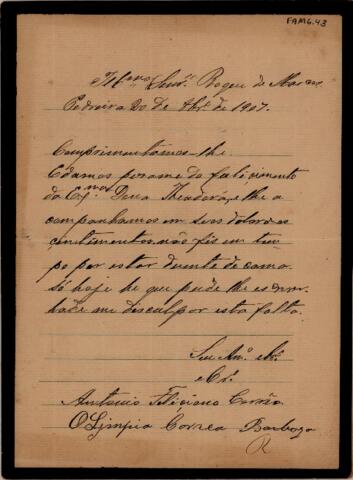 FAM6.43
Illmo Senr. Roque de
Pedreira 20 de Abr. de 1907.
Comprimentamos-lhe
E damos pezame do falicimento
da Exma. Dona Theodora, e lhe a
companhamos em seus dolorozos
centimentos, não fis em tem
po por estar duente de cama
só hoje he que pude lhe escrever
hade me disculpar esta falta.
Seu Amo.
e Cro.
Antonio Feliciano Corrêa
Olimpia Correa Barboza
R